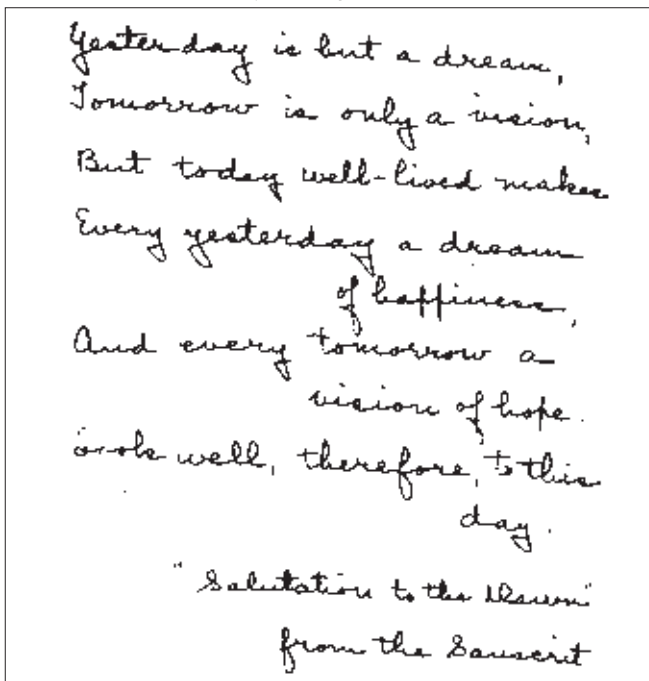 Yesterday is but a dream,
Tomorrow is only a vision,
But today well-lived makes
Every yesterday a dream
of happiness,
And every tomorrow a
vision of hope.
well, therefore, to this
day.
"Salutation to the Dawn"
from the Sanscrit